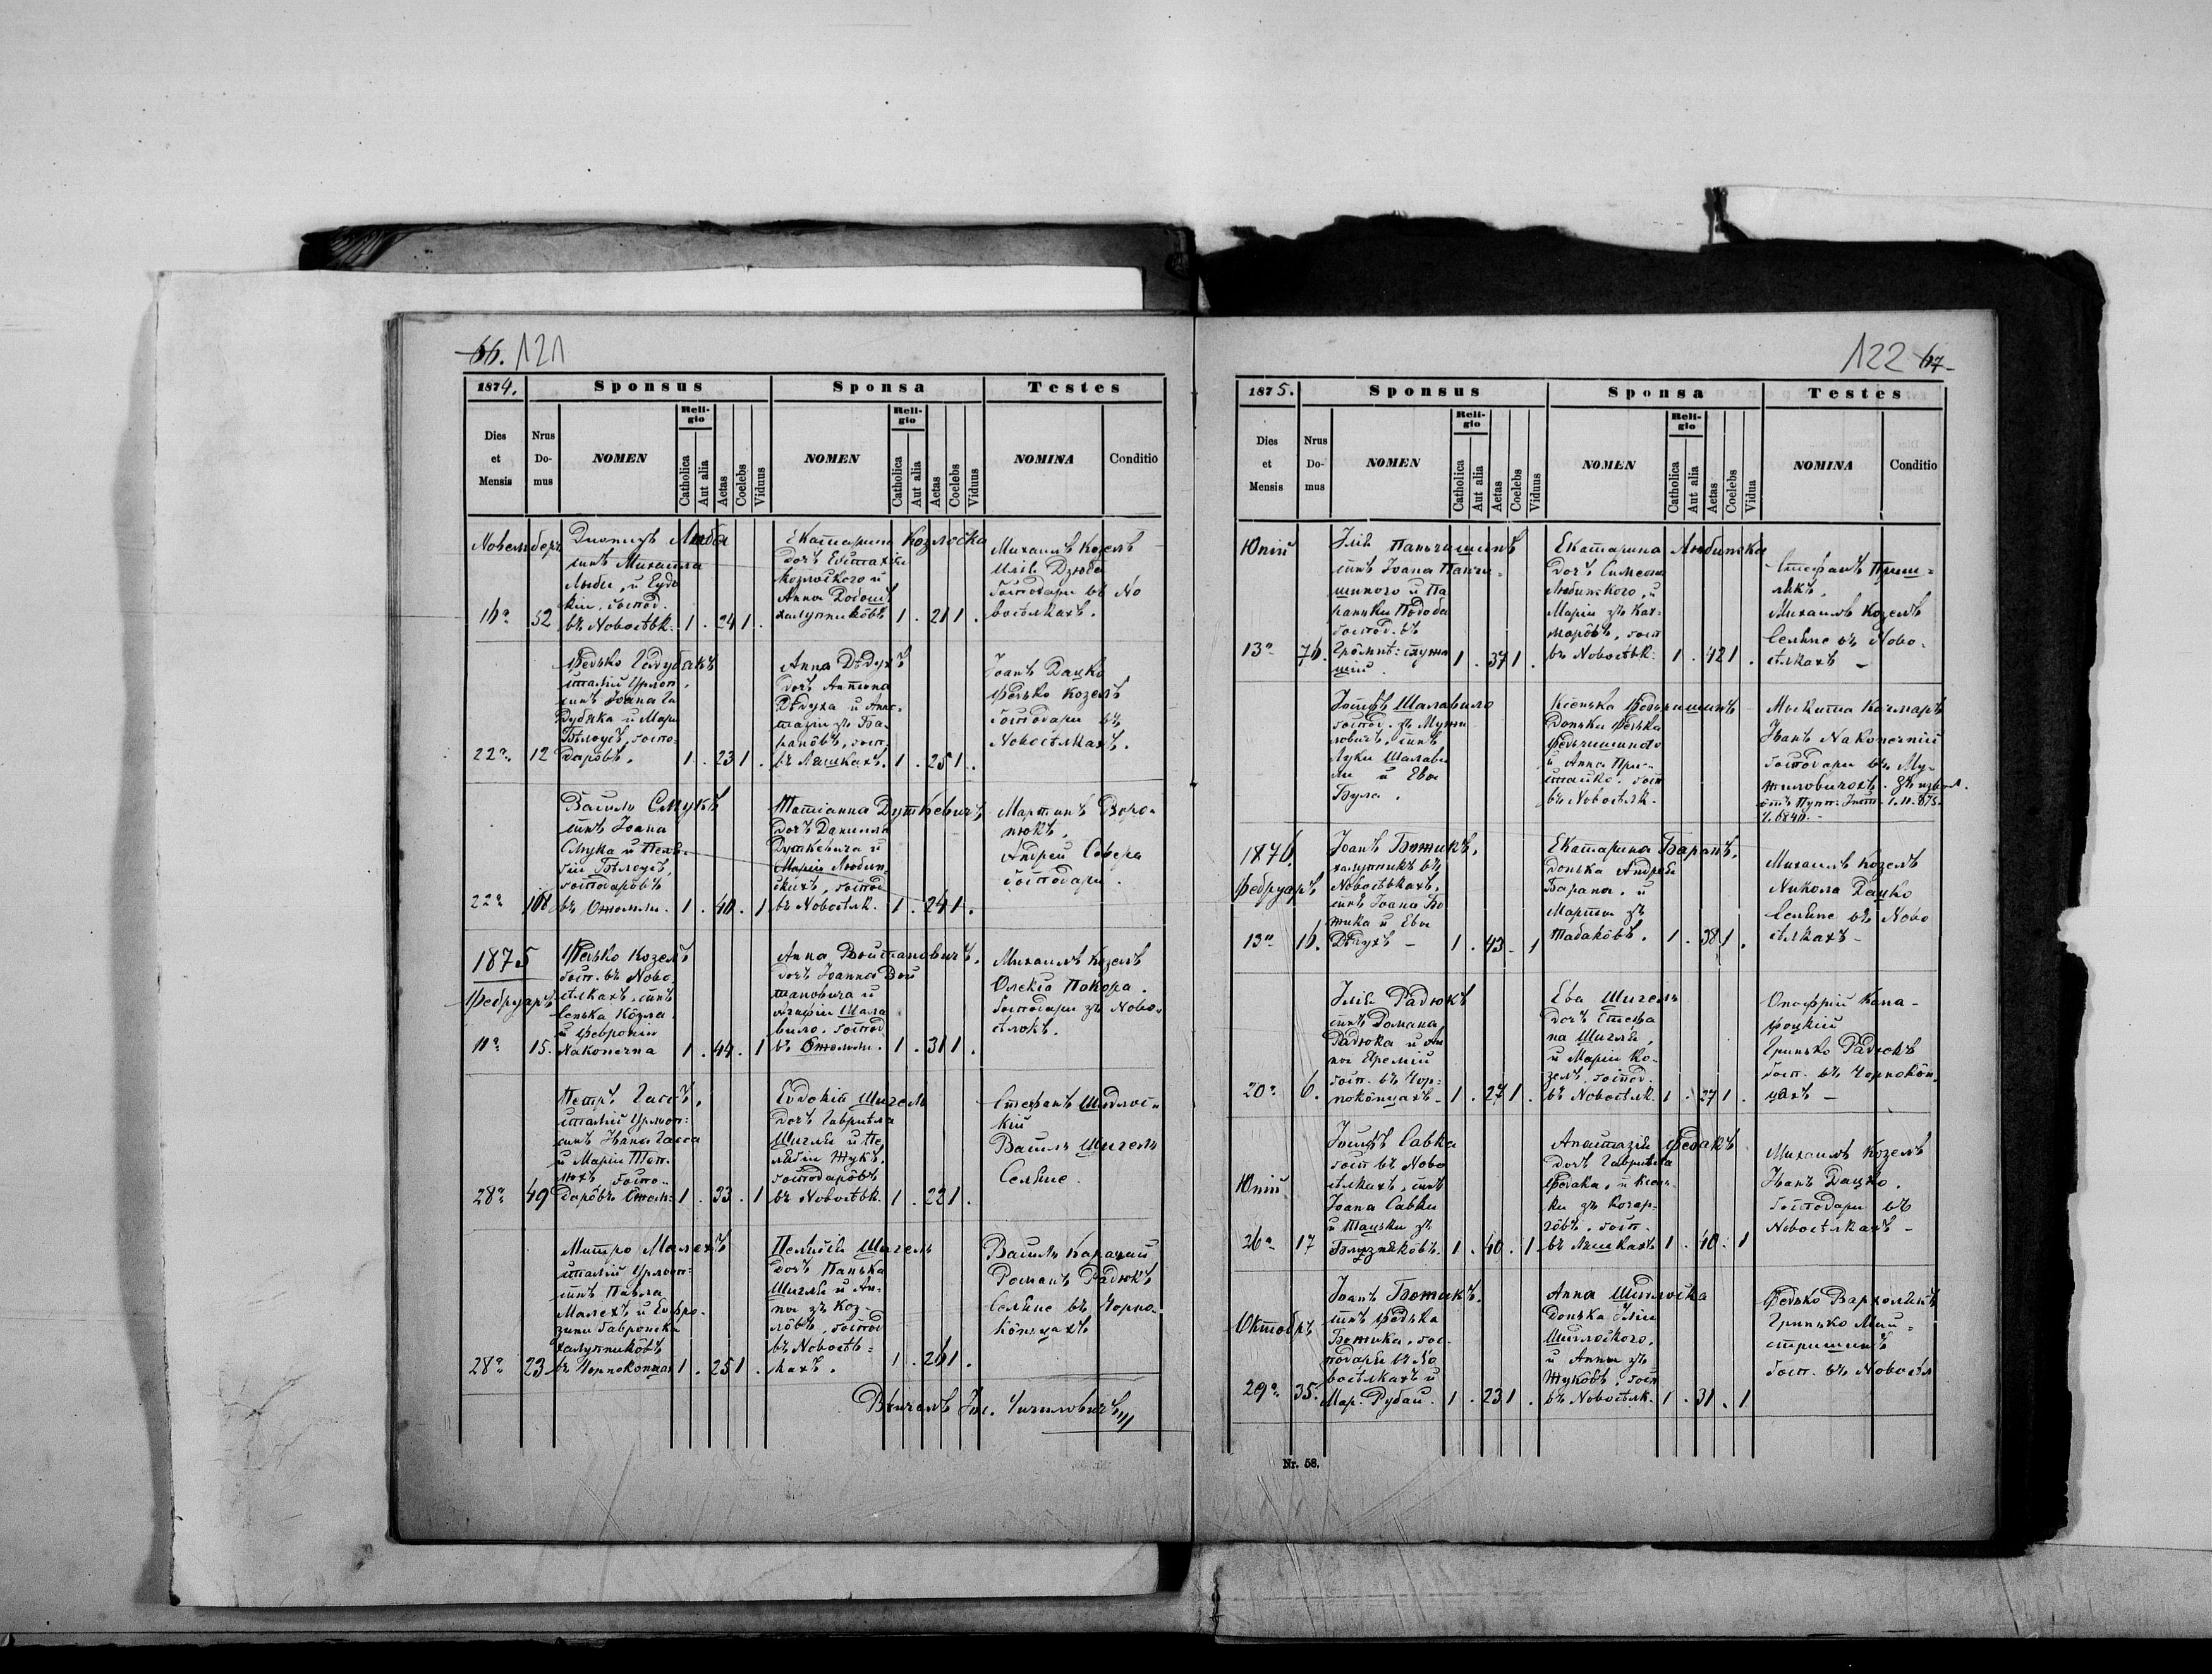 66. 121
1874.
Sponsus
Sponsa
Testes
Dies et Mensis
Nrus Domus
NOMEN
Religio
Catholica
Aut alia
Aetas
Coelebs
Viduus
NOMEN
Religio
Catholica
Aut alia
Aetas
Coelebs
Viduus
NOMINA
Conditio
Новемберъ
16а 52
Люба
сынъ Михаила
Любы, и Евдо
кіи, господ.
въ Новосѣлк. 1 . 24 1 .
Екатарина Козловска
дочъ Евстахія
Козловского и
Анна
халупниковъ 1 . 21 1 .
Михаилъ Козелъ
Илія Дзюба
господари въ Но
восѣлкахъ.
22а 12
Федько Гадубякъ
сынъ Іоана Га
дубяка и Мари
Бѣлоусъ, госпо-
даровъ. 1 . 23 1 .
Анна Дѣдухъ
дочъ Антона
Дѣдуха и Анас-
тазіи зъ Ба-
рановъ, госп.
въ Ляшкахъ. 1 . 25 1 .
Іоанъ Дацко
Федько Козелъ
господари въ
Новосѣлкахъ.
22а 108
Василь Смукъ
сынъ Іоана
Смука и Пела-
гіи Бѣлоусъ,
господаровъ
1 . 40 . 1
Татіанна Дуткевичъ
дочъ Данила
Дуткевича и
Маріи Любин-
скихъ, господ
въ Новосѣлк. 1 . 24 1 .
Мартинъ Воро-
нюкъ,
Андрей Совера
господари.
1875
Февруаръ
11а 15.
Федько Козелъ
госп. въ Ново
сѣлкахъ, сынъ
Сенька Козла
и Февроніи
Наконечна 1 . 44 . 1
Анна Войтановичъ.
дочъ Іоанна Вой
тановича и
Агафіи Шала
вило. господ
1 . 31 1 .
Михаилъ Козелъ
Олекса Покора.
господари зъ Ново-
сѣлокъ.
28а 49
Петръ Гассъ,
сынъ Ивана Гасса
и Маріи
госпо-
даровъ 1 . 33 . 1
Евдокія Шигель
дочъ Гавриила
Шигля и Пе
лагіи Жукъ,
господаровъ
въ Новосѣлк. 1 . 22 1 .
Стефанъ Шидлов-
кій
Василь Шигель
Селяне.
28а 23
Митро Малехъ
сынъ Павла
Малехъ и Евфро-
зины Гавронска
халупниковъ
въ Чорноконцах 1 . 25 1 .
Пелагія Шигель
дочъ Панька
Шигля и Ан-
ны зъ Коз-
ловъ, господ
въ Новосѣл-
кахъ. 1 . 26 1 .
Василь Карачай
Романъ Радюкъ
Селяне въ Чорно-
концахъ
122 67
1875.
Sponsus
Sponsa
Testes
Dies et Mensis
Nrus Domus
NOMEN
Religio
Catholica
Aut alia
Aetas
Coelebs
Viduus
NOMEN
Religio
Catholica
Aut alia
Aetas
Coelebs
Vidua
NOMINA
Conditio
Юній
13а 76.
Илія Панчишинъ
сынъ Іоана Панчи-
шиного и Па
раньки Подоба
господ. въ
1 . 37 1 .
Екатарина Любинска
дочъ Симеона
Любинского, и
Маріи зъ Кач-
маровъ, госп
въ Новосѣлк. 1 . 42 1 .
Михаилъ Козелъ
Селяне въ Ново-
сѣлкахъ –
Іосифъ Шалавило
господ. зъ Мужи
ловичъ, сынъ
Луки Шалави
ла и Евы
Була.
Ксенька Федчишинъ
донька Федька
Федчишиного
и Анна При-
сташко. госп
въ Новосѣлк.
Микита Качмаръ
Иванъ Наконечный
господари въ Му-
жиловичахъ.
1876.
Февруаръ
13а 16.
Іоанъ Ботикъ,
халупникъ въ
Новосѣлкахъ,
сынъ Іоана Бо
тика и Евы
Дѣдухъ – 1 . 43 – 1
Екатарина Баранъ,
донька Андрея
Барана, и
Марты зъ
Табаковъ. 1 . 38 1 .
Михаилъ Козелъ
Никола Дацко
Селяне въ Ново
сѣлкахъ –
20а 6.
Илія Радюкъ
сынъ Романа
Радюка и Ан
ны Яремій
госп. въ Чор-
ноконцахъ – 1 . 27 1 .
Ева Шигель
дочъ Стефа
на Шигля,
и Маріи Ко-
зелъ, господ.
въ Новосѣлк. 1 . 27 1 .
Онофрій Кана-
фоцкій
Гринько Радюкъ
госп. въ Чорнокон-
цахъ –
Юній
26а 17
Іосифъ Савка
госп въ Ново
сѣлкахъ, сынъ
Іоана Савки
и Тацьки зъ
Близняковъ. 1 . 40 . 1
Анастазія Федакъ
дочъ Гавриила
Федака, и Ксень-
ки зъ
госп.
въ Ляшкахъ 1 . 40 . 1
Михаилъ Козелъ
Иванъ Дацко.
господари въ
Новосѣлкахъ –
Октобръ
29а 35.
Іоанъ Ботикъ.
сынъ Федька
Ботика, гос-
подаря въ Но
восѣлкахъ и
Мар. Рубай. 1 . 23 1 .
Анна Шидловска
донька Иліи
Шидловского,
и Анны зъ
Жуковъ, госп
въ Новосѣлк. 1 . 31 . 1
Федько Вархолякъ
Гринько Май-
стришинъ
госп. въ Новосѣл
Nr. 58.